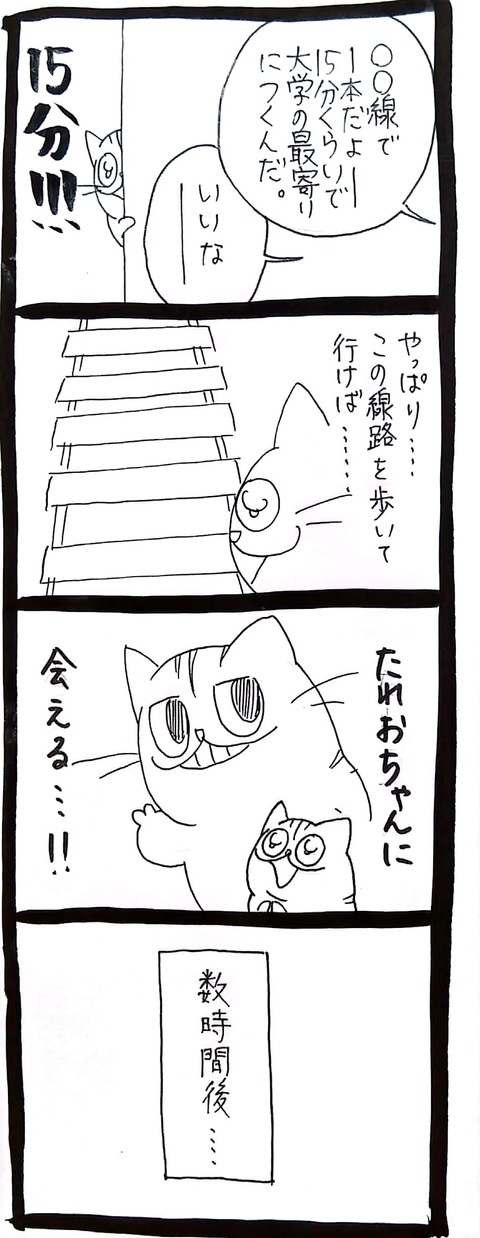 〇〇線で
1本だよー
15分くらいで
大学の最寄り
につくんだ。
いいなー
15分!!!
やっぱり……
この線路を歩いて
行けば………
たれおちゃんに
会える…!!
数時間後……